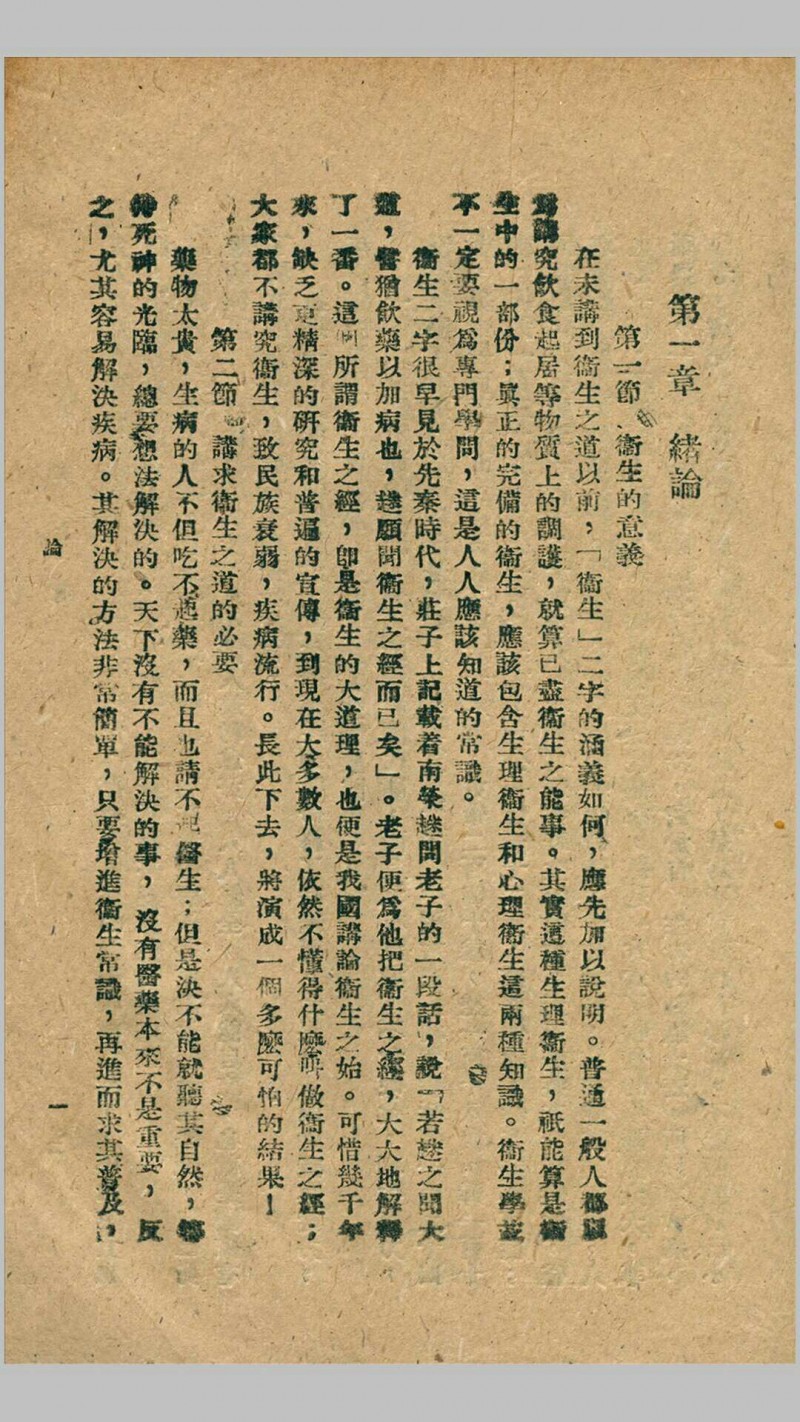 第一章　緒論
第一節　衞生的意義
在未講到衞生之道以前，「衞生」二字的涵義如何，應先加以說明。普通一般人都以
爲講究飲食起居等物質上的調護，就算已盡衞生之能事。其實這種生理衞生，祇能算是衞
生中的一部份；眞正的完備的衞生，應該包含生理衞生和心理衞生這兩種知識。衞生學並
不一定要視爲專門學問，這是人人應該知道的常識。
衞生二字很早見於先秦時代，莊子上記載着南榮趎問老子的一段話，說「若趎之聞大
道，譬猶飲藥以加病也，趎願聞衞生之經而已矣」。老子便爲他把衞生之經，大大地解釋
了一番。這個所謂衞生之經，卽是衞生的大道理，也便是我國講論衞生之始。可惜幾千年
來，缺乏更精深的研究和普遍的宣傳，到現在大多數人，依然不懂得什麼叫做衞生之經；
大家都不講究衞生，致民族衰弱，疾病流行。長此下去，將演成一個多麼可怕的結果！
第二節　講求衞生之道的必要
藥物太貴，生病的人不但吃不起藥，而且也請不起醫生；但是決不能就聽其自然，
死神的光臨，總要想法解決的。天下沒有不能解決的事，沒有醫藥本來不是重要，反
之，尤其容易解決疾病。其解決的方法非常簡單，只要增進衞生常識，再進而求其普及，
論
一